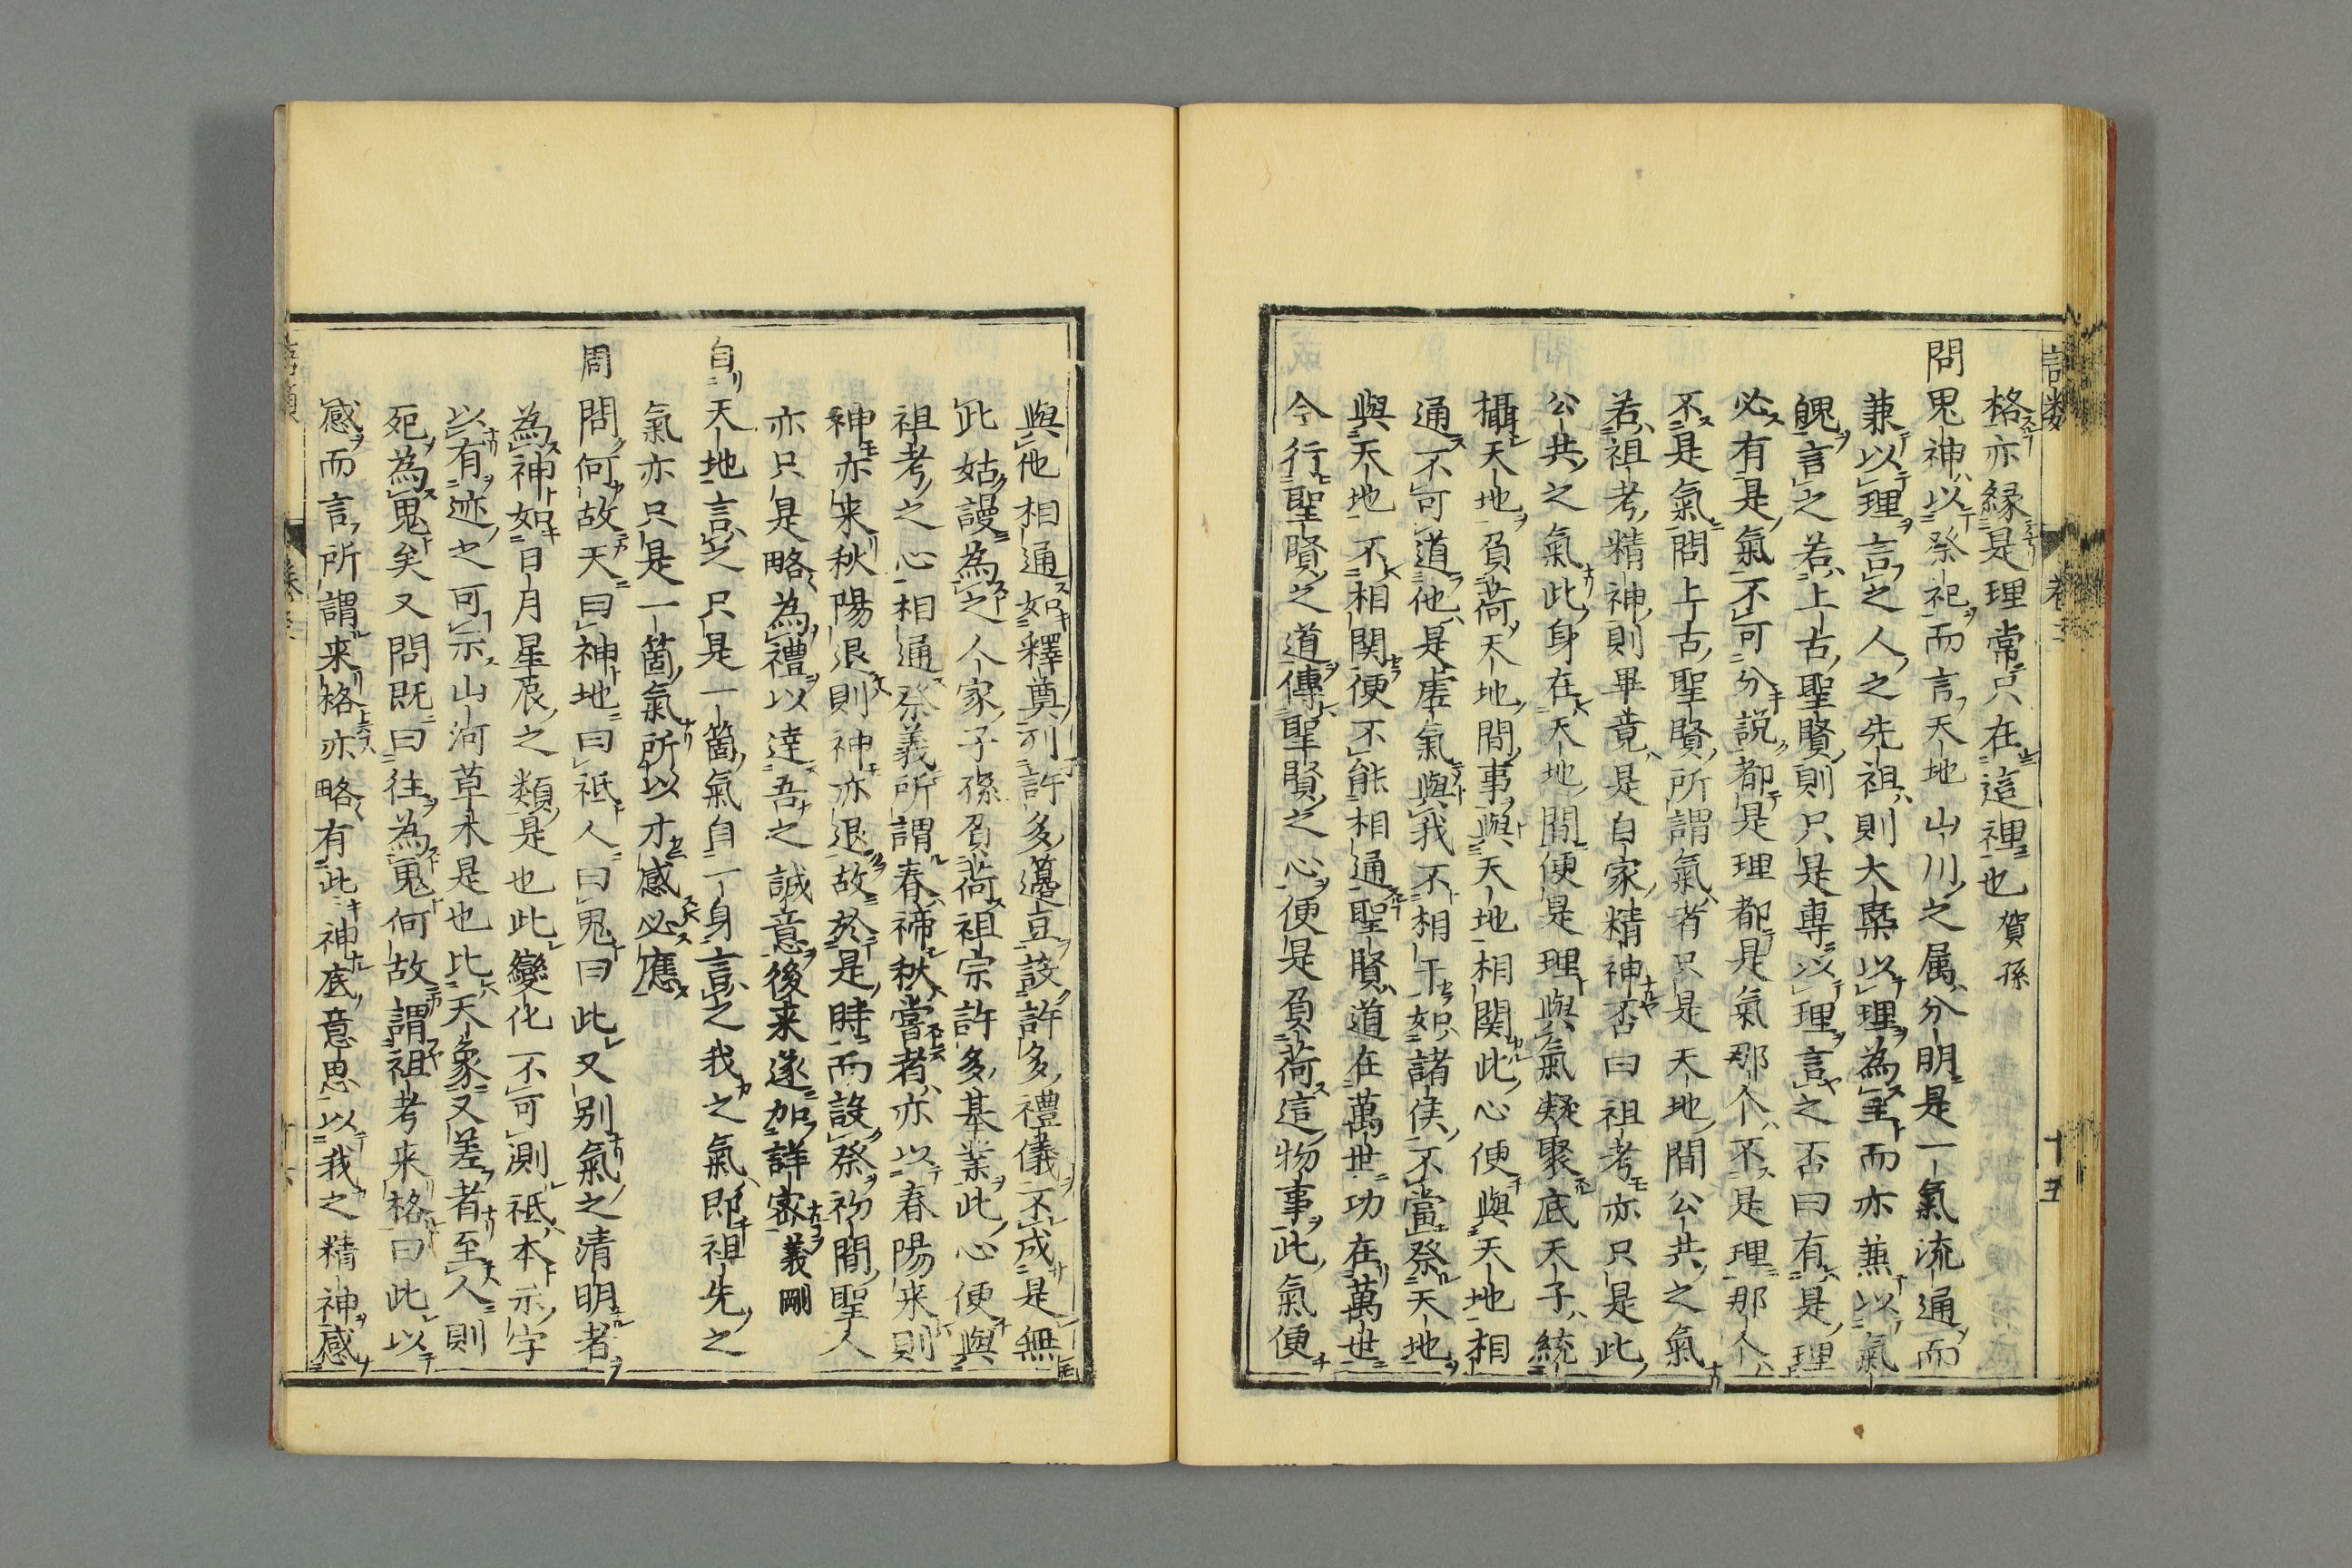 格亦縁是理常只在這裡也 賀孫
問鬼神以祭祀而言天地山川之属分明是一氣流通而
兼以理言之人之先祖則大槩以理為主而亦兼以氣
魄言之若上古聖賢則只是專以理言之否曰有是理
必有是氣不可分説都是理都是氣那个不是理那个
不是氣問上古聖賢所謂氣者只是天地間公共之氣
若祖考精神則畢竟是自家精神否曰祖考亦只是此
公共之氣此身在天地間便是理與氣凝聚底天子統
攝天地負荷天地間事與天地相関此心便與天地相
通不可道他是虗氣與我不相干如諸侯不當祭天地
與天地不相関便不能相通聖賢道在萬世功在萬世
今行聖賢之道傳聖賢之心便是負荷這物事此氣便
與他相通如釋奠列許多籩豆設許多禮儀不成是無
此姑謾為之人家子孫負荷祖宗許多基業此心便與
祖考之心相通祭義所謂春禘秋嘗者亦以春陽来則
神亦来秋陽退則神亦退故於是時而設祭初間聖人
亦只是略為禮以達吾之誠意後来遂加詳密 義剛
自天地言之只是一箇氣自一身言之我之氣即祖先之
氣亦只是一箇氣所以才感必應
周問何故天曰神地曰祇人曰鬼曰此又别氣之清明者
為神如日月星辰之類是也此變化不可測祇本示字
以有迹之可示山河草木是也比天象又差者至人則
死為鬼矣又問既曰往為鬼何故謂祖考来格曰此以
感而言所謂来格亦略有此神底意思以我之精神感
語類 卷三 十五